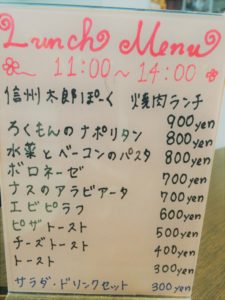 Lunch Menu
11:00～14:00
信州太郎ぽーく 焼肉ランチ 900yen
ろくもんのナポリタン 800yen
水菜とベーコンのパスタ 800yen
ボロネーゼ 700yen
ナスのアラビアータ 700yen
エビピラフ 600yen
ピザトースト 500yen
チーズトースト 400yen
トースト 300yen
サラダ・ドリンクセット 300yen